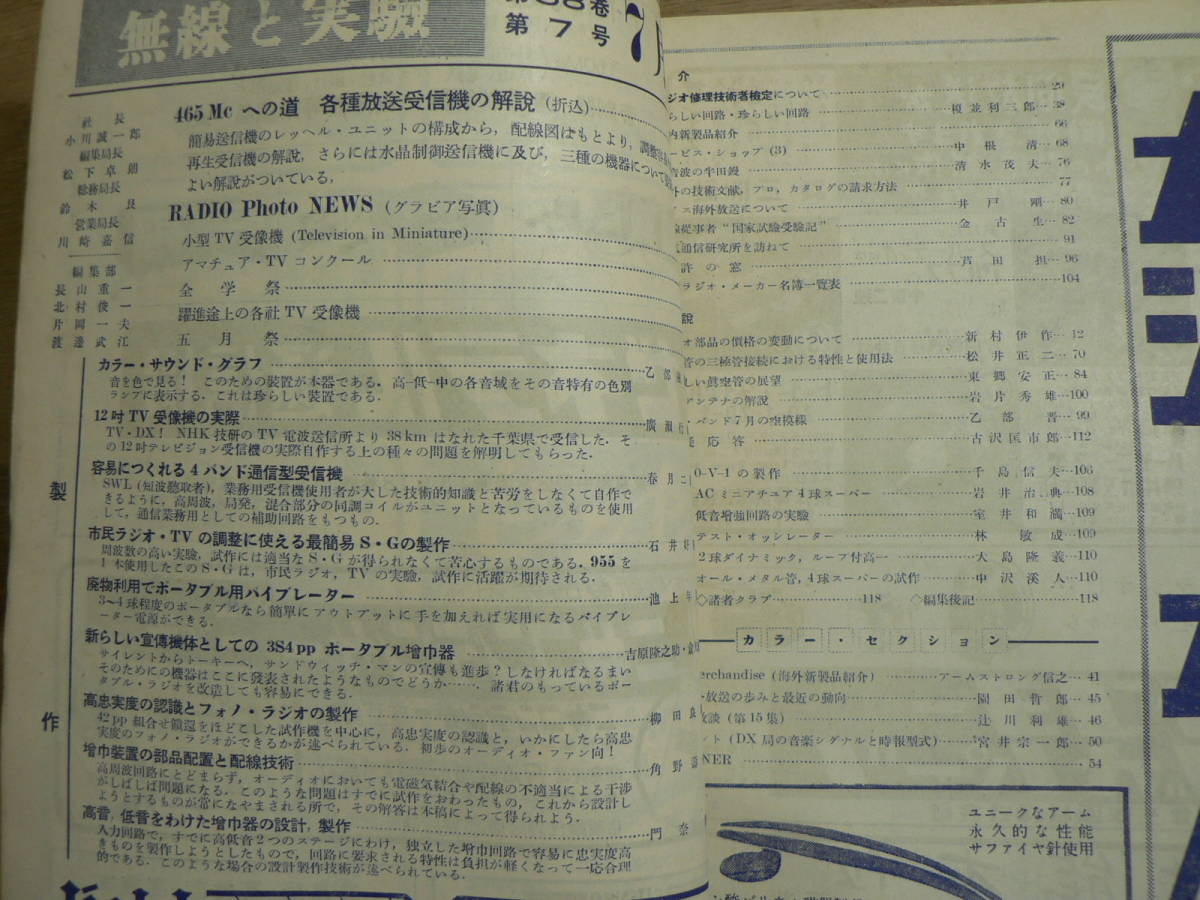 無線と実験
第38巻
第7号
7月
465 Mc への道 各種放送受信機の解説 (折込)
簡易送信機のレッヘル・ユニットの構成から，配線図はもとより，調整
再生受信機の解説，さらには水晶制御送信機に及び，三種の機器について
よい解説がついている，
RADIO Photo NEWS (グラビア写眞)
小型 TV 受像機 (Television in Miniature)
アマチュア・TV コンクール
全学祭
躍進途上の各社 TV 受像機
五月祭
社長
小川誠一郎
編集局長
松下卓朗
総務局長
鈴木良
営業局長
川崎嘉信
編集部
長山重一
北村俊一
片岡一夫
渡邊武江
製作
カラー・サウンド・グラフ 乙部
音を色で見る！ このための装置が本器である。高-低-中の各音域をその音特有の色別
ランプに表示する。これは珍らしい装置である。
12吋 TV 受像機の実際 廣瀬
TV・DX！ NHK 技研の TV 電波送信所より 38 km はなれた千葉県で受信した。そ
の12吋テレビジョン受信機の実際自作する上の種々の問題を解明してもらった。
容易につくれる4バンド通信型受信機 春月二
SWL (短波聽取者)，業務用受信機使用者が大した技術的知識と苦労をしなくて自作で
きるように，高周波，局発，混合部分の同調コイルがユニットとなっているものを使用
して，通信業務用としての補助回路をもつもの．
市民ラジオ・TV の調整に使える最簡易 S・Gの製作 石井
周波数の高い実験，試作には適当な S・G が得られなくて苦心するものである．955を
1 本使用したこの S・G は，市民ラジオ，TV の実験，試作に活躍が期待される．
廃物利用でポータブル用バイブレーター 池上
3〜4 球程度のポータブルなら簡単にアウトプットに手を加えれば実用になるバイブレ
ーター電源ができる．
新らしい宣傳機体としての 3S4 pp ポータブル増巾器 吉原隆之助・
サイレントからトーキーへ，サンドウィッチ・マンの宣傳も進歩？しなければなるまい
そのための機器はここに発表されたようなものでどうか……．諸君のもっているポー
タブル・ラジオを改造しても容易にできる．
高忠実度の認識とフォノ・ラジオの製作 柳田良
42 pp 組合せ饋還をほどこした試作機を中心に，高忠実度の認識と，いかにしたら高忠
実度のフォノ・ラジオができるかが述べられている．初歩のオーディオ・ファン向！
増巾装置の部品配置と配線技術 角野
高周波回路にとどまらず，オーディオにおいても電磁気結合や配線の不適当による干渉
がしばしば問題になる．このような問題はすでに試作をおわったもの，これから設計し
ようとするものが常になやまされる所で，その解答は本稿によって得られよう．
高音，低音をわけた増巾器の設計，製作 門奈
入力回路で，すでに高低音2つのステージにわけ，独立した増巾回路で容易に忠実度高
きものを製作しようとしたもので，回路に要求される特性は負担が軽くなって一応合理
的である．このような場合の設計製作技術が述べられている．
介
ジオ修理技術者檢定について 29
らしい回路・珍らしい回路 榎並利三郎 38
内新製品紹介 66
ービス・ショップ (3) 中根清 68
音波の半田鏝 清水茂夫 76
外の技術文献，プロ，カタログの請求方法 77
海外放送について 井戸剛 80
線従事者“国家試験受驗記” 金古生 82
通信研究所を訪ねて 91
許の窓 芦田担 96
ラジオ・メーカー名簿一覧表 104
説
オ部品の價格の変動について 新村伊作 12
管の三極管接続における特性と使用法 松井正二 70
しい眞空管の展望 東郷安正 84
アンテナの解説 岩片秀雄 100
バンド7月の空模様 乙部晋 99
応答 古沢匡市郎 112
0-V-1 の製作 千島信夫 106
AC ミニアチュア4球スーパー 岩井治典 108
低音増強回路の実験 室井和満 109
テスト・オッシレーター 林敏成 109
2球ダイナミック，ループ付高一 大島隆義 110
オール・メタル管，4球スーパーの試作 中沢溪人 110
◇読者クラブ 118 ◇編集後記 118
カラー・セクション
erchandise (海外新製品紹介) アームストロング信之 41
放送の歩みと最近の動向 園田哲郎 45
放談 (第15集) 辻川利雄 46
ット (DX 局の音楽シグナルと時報型式) 宮井宗一郎 50
NER 54
ユニークなアーム
永久的な性能
サファイヤ針使用